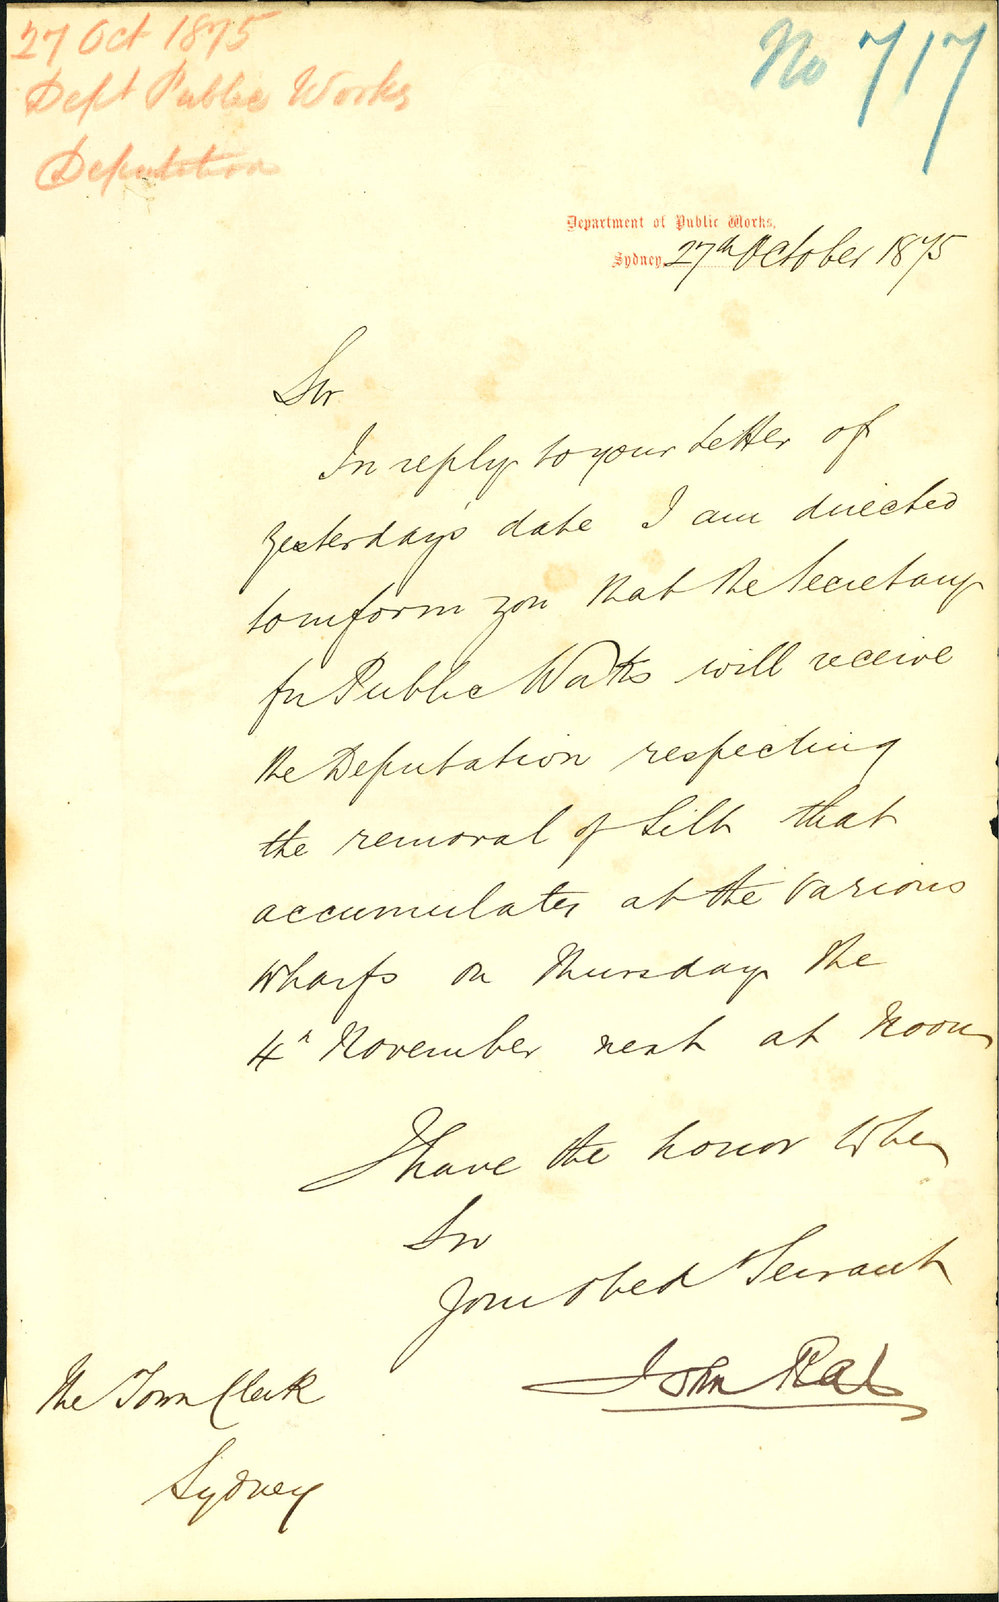 27 Oct 1875
Dept Public Works
Deputation
No 717
Department of Public Works,
Sydney, 27th October 1875
Sir
In reply to your letter of
yesterday's date I am directed
to inform you that the Secretary
for Public Works will receive
the Deputation respecting
the removal of Silt that
accumulates at the various
Wharfs on Thursday the
4th November next at Noon
I have the honor to be
Sir
Your Obed Servant
John Rae
The Town Clerk
Sydney